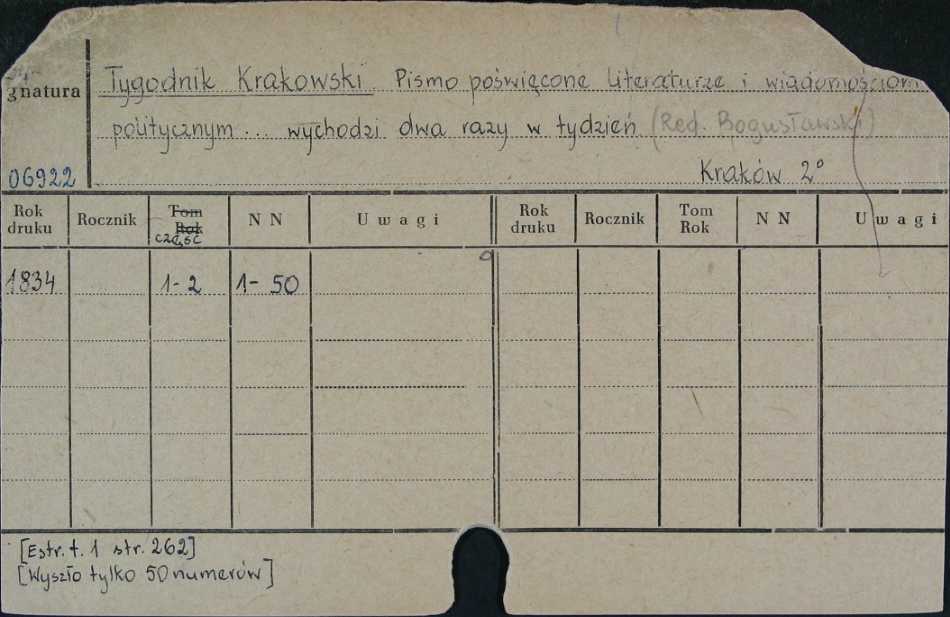 Tygodnik Krakowski. Pismo poświęcone literaturze i wiadomościom
gnatura
politycznym ... wychodzi dwa razy w tydzień (Red. Bogusławski)
06922
Kraków 2°
Rok druku Rocznik Tom Rok część NN Uwagi Rok druku Rocznik Tom Rok NN Uwagi
1834 1-2 1- 50
[Estr. t. 1 str. 262]
[Wyszło tylko 50 numerów]